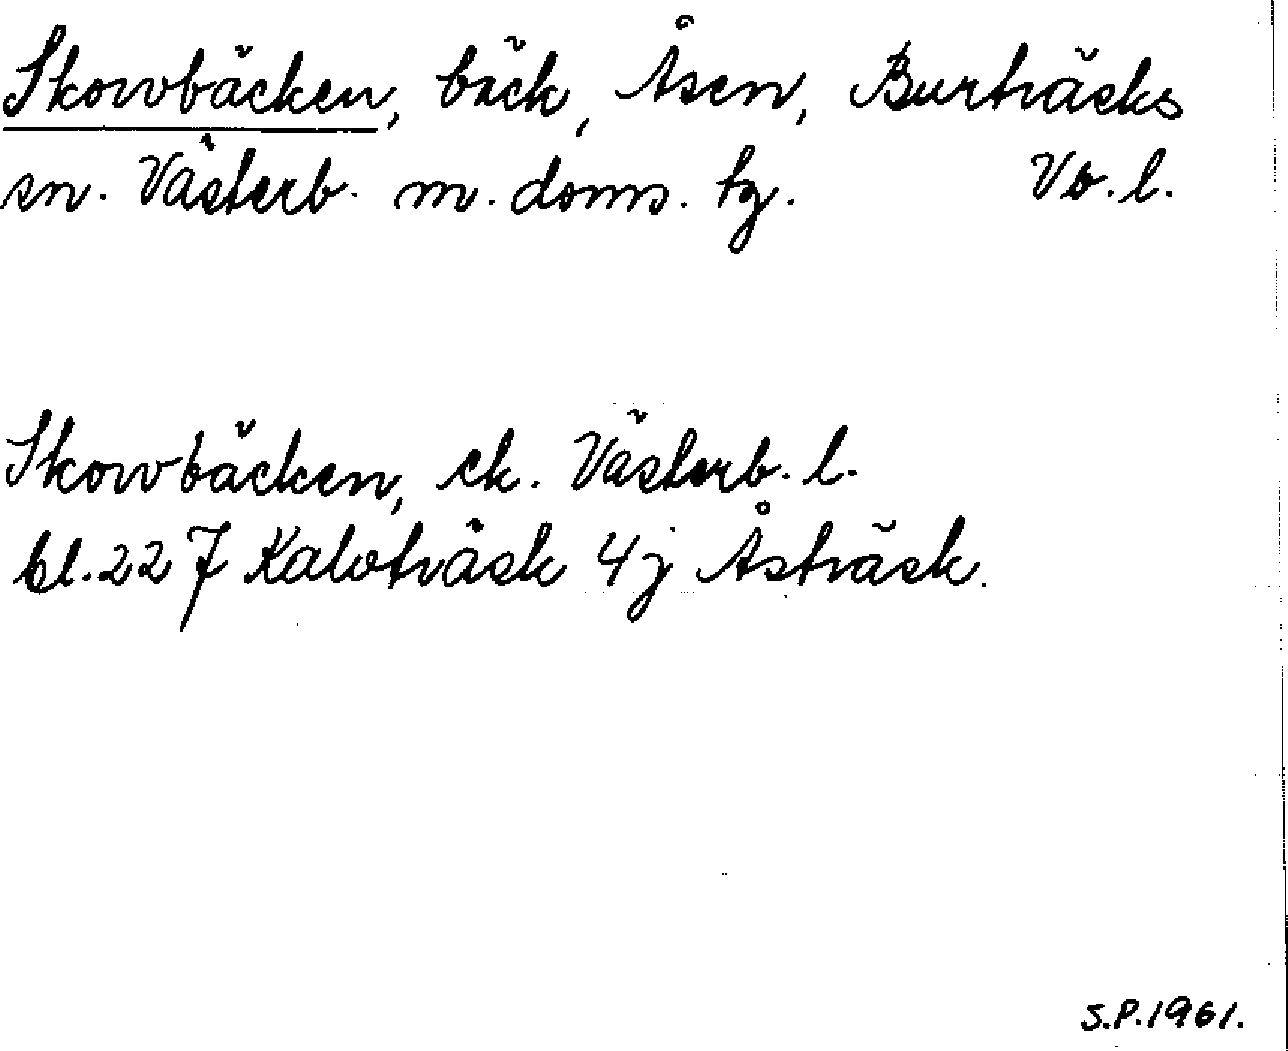 Skowbäcken, bäck, Åsen, Burträsks
sn. Västerb. m. doms. tg. Vb. l.
Skowbäcken, ek. Västerb. l.
bl. 22 J Kalvträsk 4j Åsträsk.
S.P. 1961.